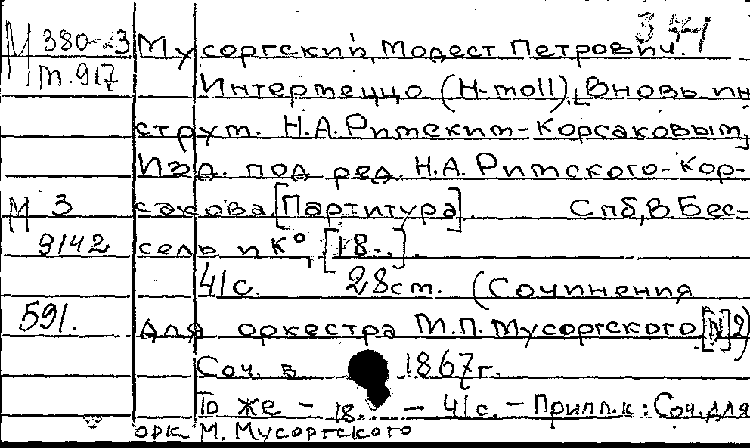 344
М 380-3 Мусоргский, Модест Петрович.
т.917 Интермеццо (H-moll). [Вновь ин
струм. Н.А. Римским-Корсаковым]
Изд. под ред. Н.А. Римского-Кор-
М 3 сакова. [Партитура]. Спб, В. Бес-
9142 сель и Кº, [18-..].
41с. 28см. (Сочинения
591. для оркестра М.П. Мусоргского [N]2)
Соч. в 1867г.
То же - 18.. - 41с. - Припл.к: Соч. для
орк. М. Мусоргского